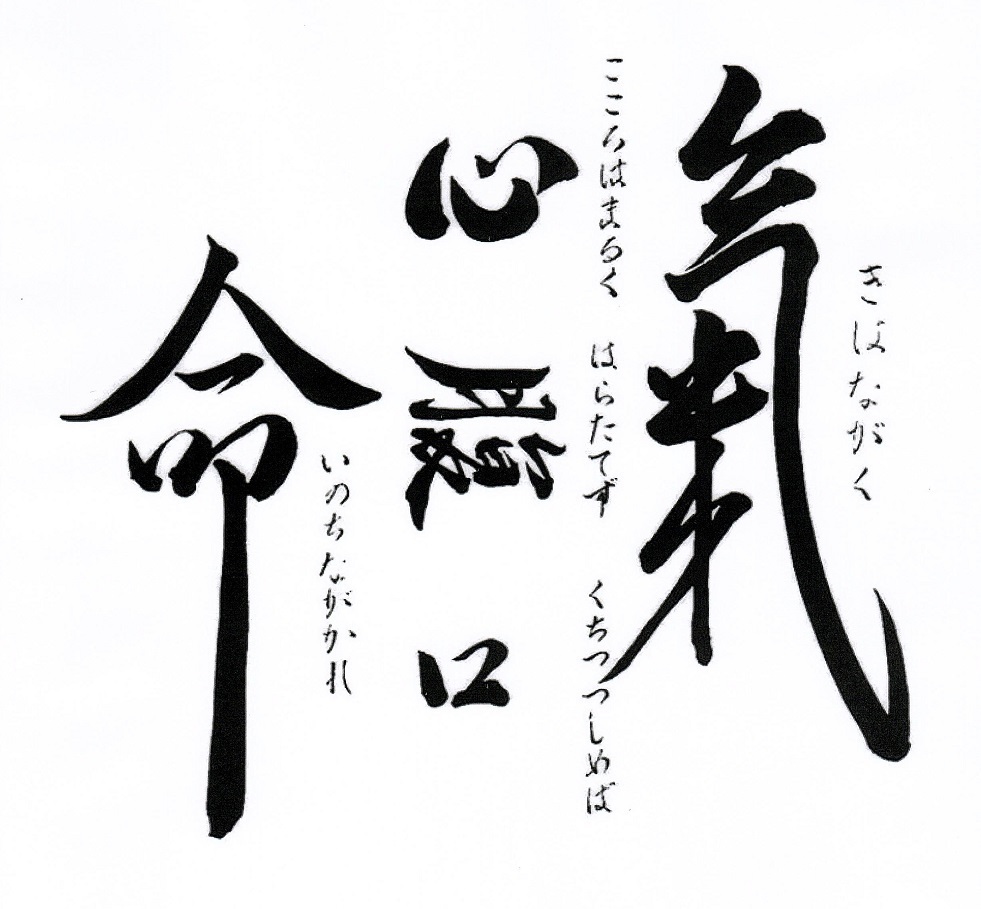 きはながく
氣
こころはまるく はらたてず くちつつしめば
心 腹 口
いのちながかれ
命